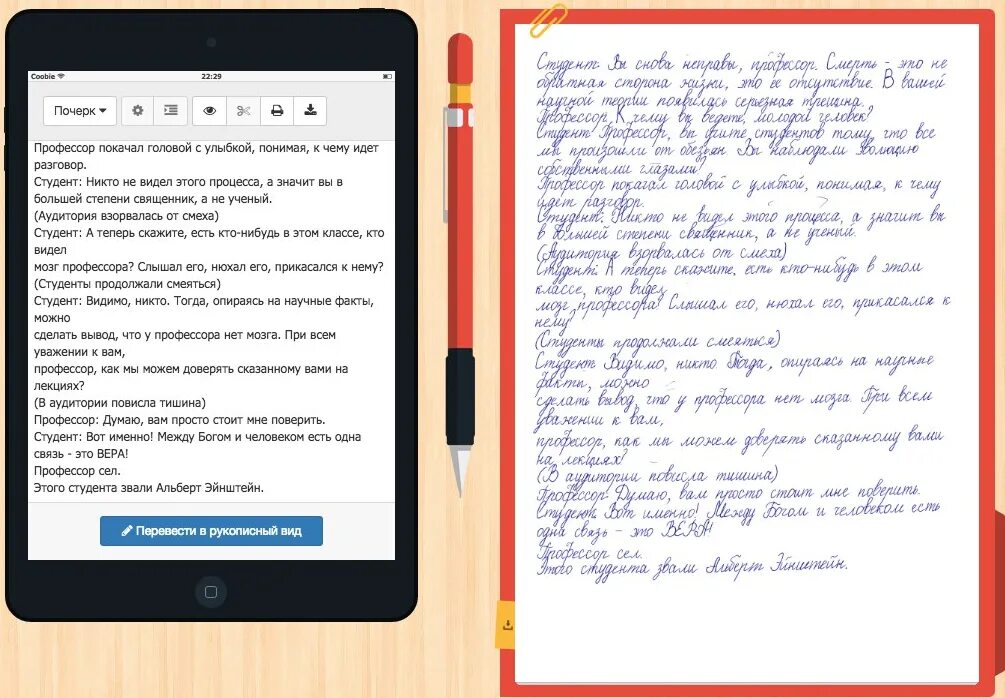 Coobie
22:29
Почерк
Профессор покачал головой с улыбкой, понимая, к чему идет
разговор.
Студент: Никто не видел этого процесса, а значит вы в
большей степени священник, а не ученый.
(Аудитория взорвалась от смеха)
Студент: А теперь скажите, есть кто-нибудь в этом классе, кто
видел
мозг профессора? Слышал его, нюхал его, прикасался к нему?
(Студенты продолжали смеяться)
Студент: Видимо, никто. Тогда, опираясь на научные факты,
можно
сделать вывод, что у профессора нет мозга. При всем
уважении к вам,
профессор, как мы можем доверять сказанному вами на
лекциях?
(В аудитории повисла тишина)
Профессор: Думаю, вам просто стоит мне поверить.
Студент: Вот именно! Между Богом и человеком есть одна
связь - это ВЕРА!
Профессор сел.
Этого студента звали Альберт Эйнштейн.
Перевести в рукописный вид
Студент: Вы снова неправы, профессор. Смерть - это не
обратная сторона жизни, это ее отсутствие. В вашей
научной теории появилась серьезная трещина.
Профессор: К чему вы ведете, молодой человек?
Студент: Профессор, вы учите студентов тому, что все
мы произошли от обезьян. Вы наблюдали эволюцию
собственными глазами?
Профессор покачал головой с улыбкой, понимая, к чему
идет разговор.
Студент: Никто не видел этого процесса, а значит вы
в большей степени священник, а не ученый.
(Аудитория взорвалась от смеха)
Студент: А теперь скажите, есть кто-нибудь в этом
классе, кто видел
мозг профессора? Слышал его, нюхал его, прикасался к
нему?
(Студенты продолжали смеяться)
Студент: Видимо, никто. Тогда, опираясь на научные
факты, можно
сделать вывод, что у профессора нет мозга. При всем
уважении к вам,
профессор, как мы можем доверять сказанному вами
на лекциях?
(В аудитории повисла тишина)
Профессор: Думаю, вам просто стоит мне поверить.
Студент: Вот именно! Между Богом и человеком есть
одна связь - это ВЕРА!
Профессор сел.
Этого студента звали Альберт Эйнштейн.